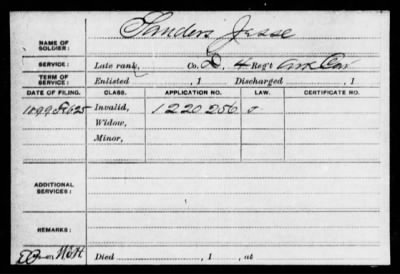 NAME OF SOLDIER: Sanders Jesse
SERVICE: Late rank, Co. D, 4 Reg't Ark Cav
TERM OF SERVICE: Enlisted , 1 Discharged , 1
DATE OF FILING. CLASS. APPLICATION NO. LAW. CERTIFICATE NO.
Invalid, 1220256
Widow,
Minor,
ADDITIONAL SERVICES:
REMARKS:
Died , 1 , at